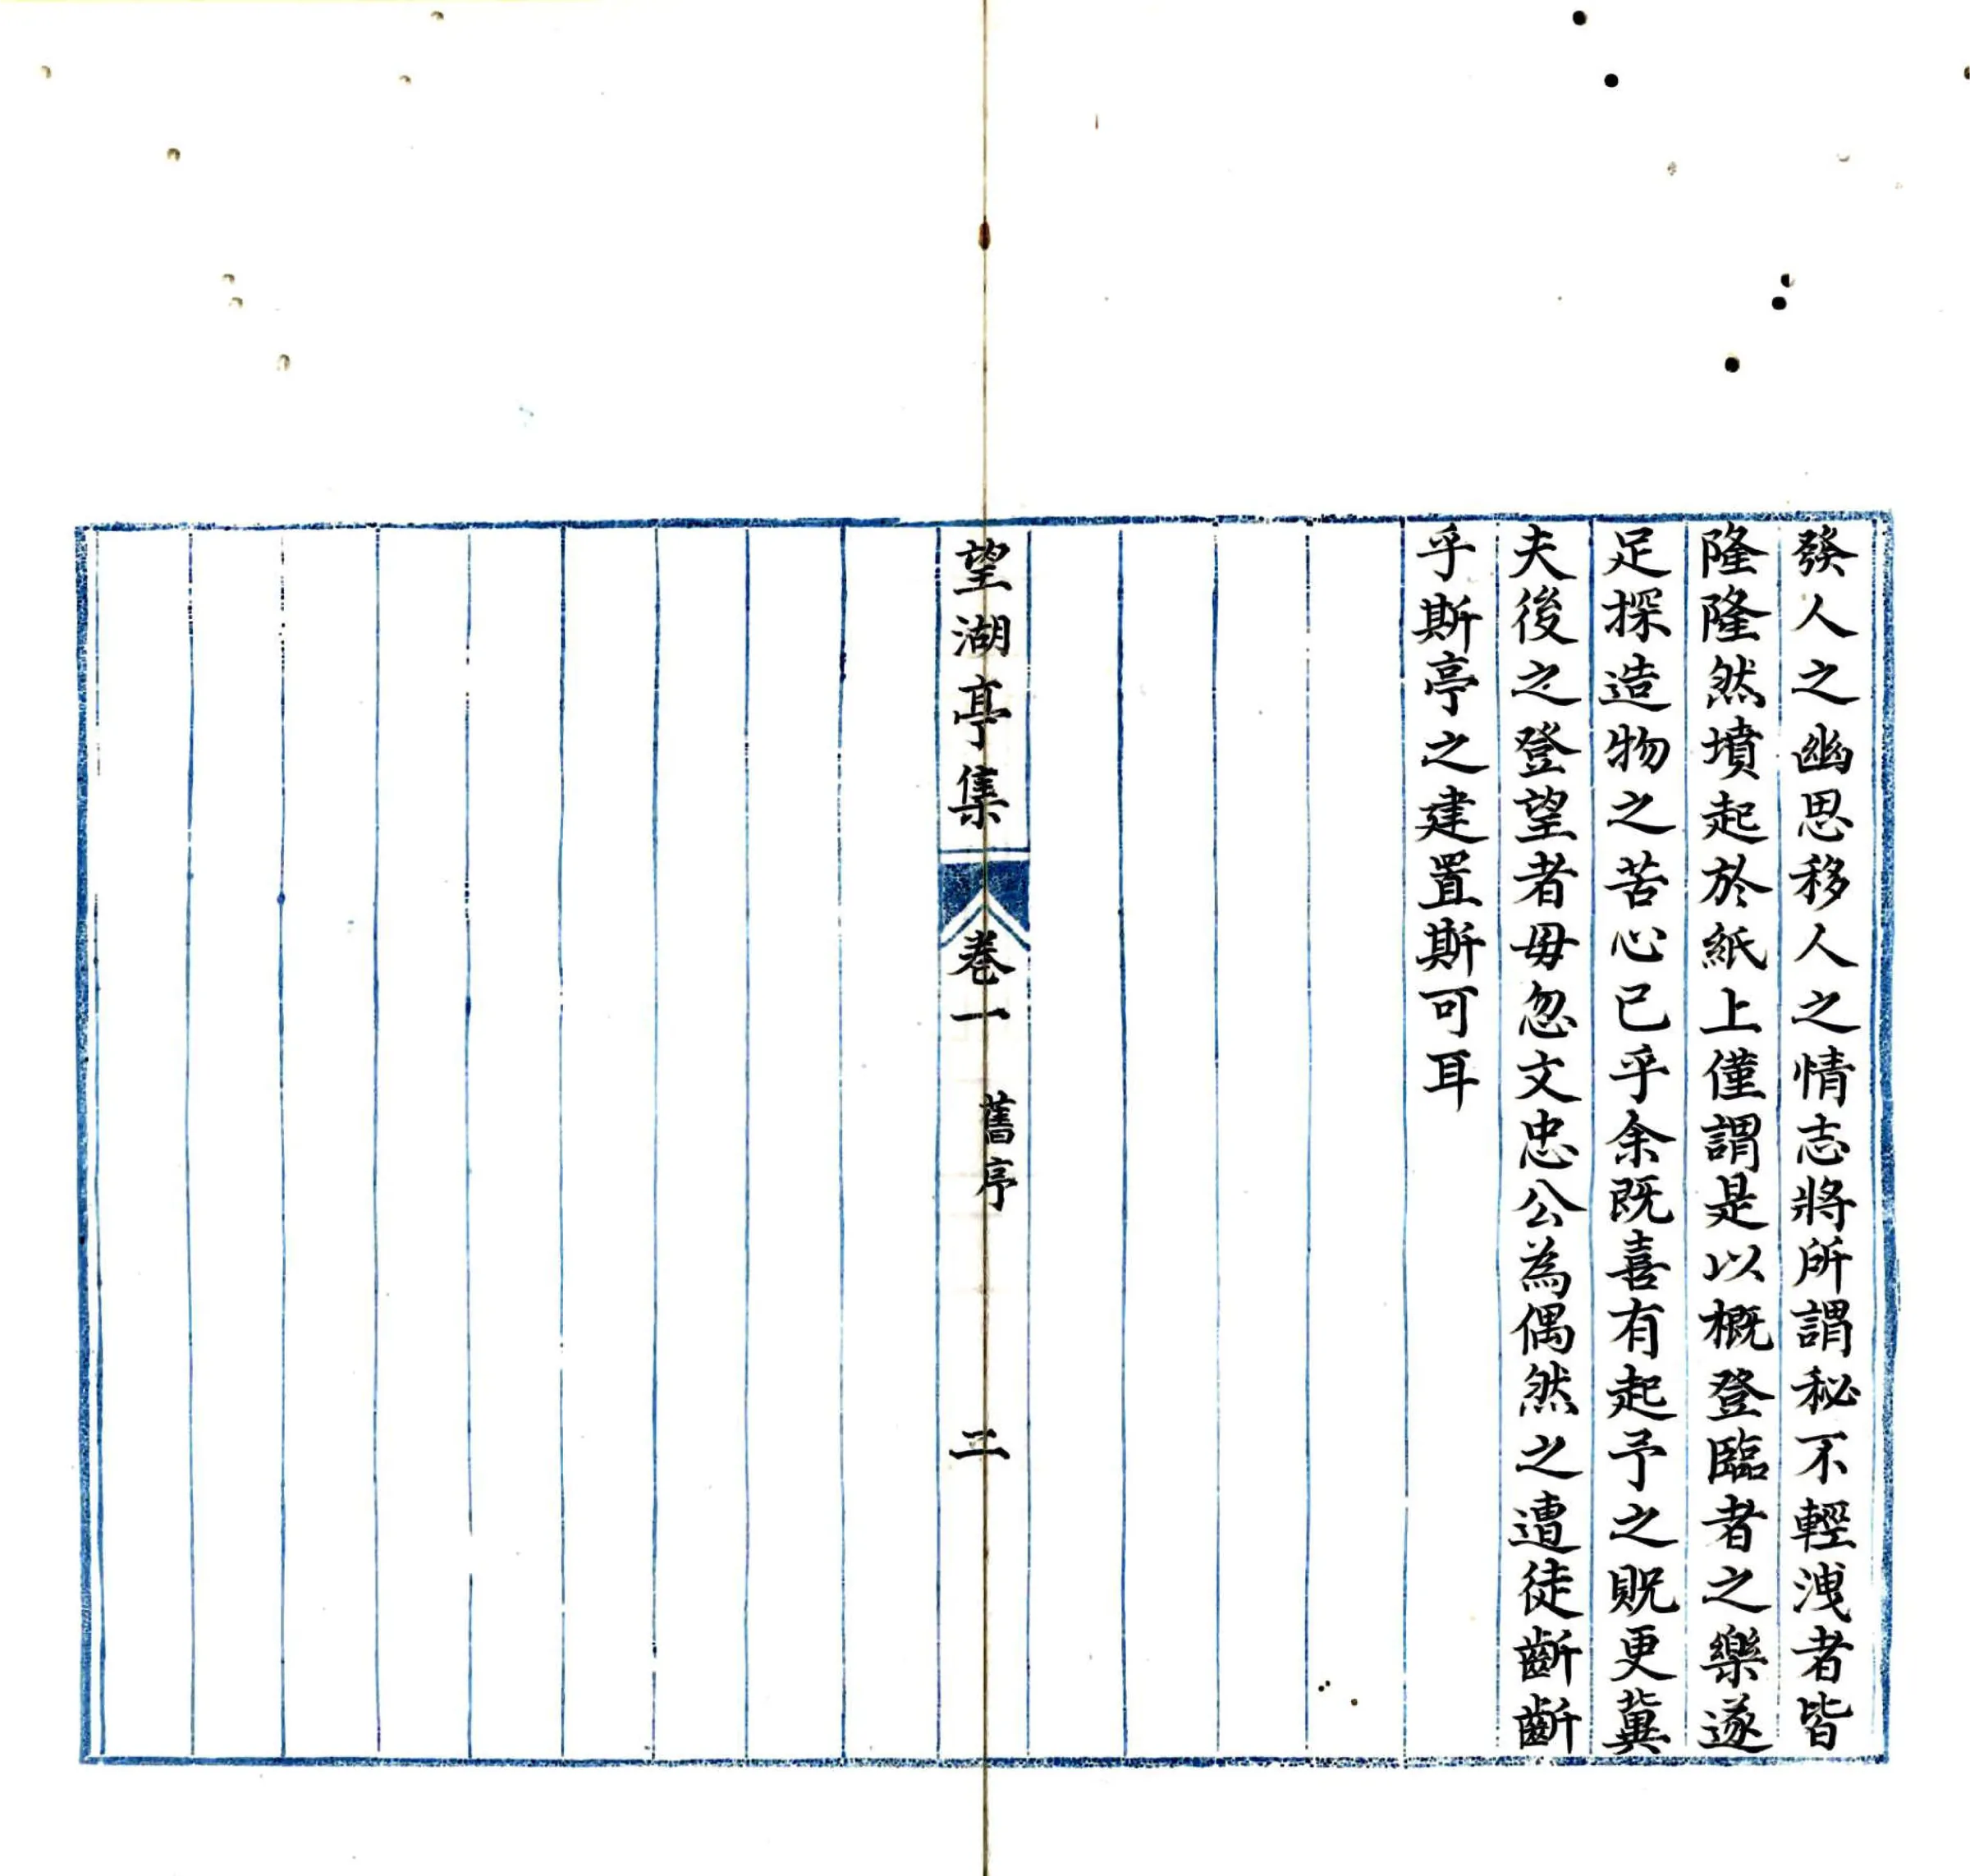 發人之幽思移人之情志將所謂秘不輕洩者皆
隆隆然墳起於紙上僅謂是以概登臨者之樂遂
足探造物之苦心已乎余既喜有起予之貺更冀
夫後之登望者毋忽文忠公為偶然之遭徒齗齗
乎斯亭之建置斯可耳
望湖亭集 卷一 舊序 二